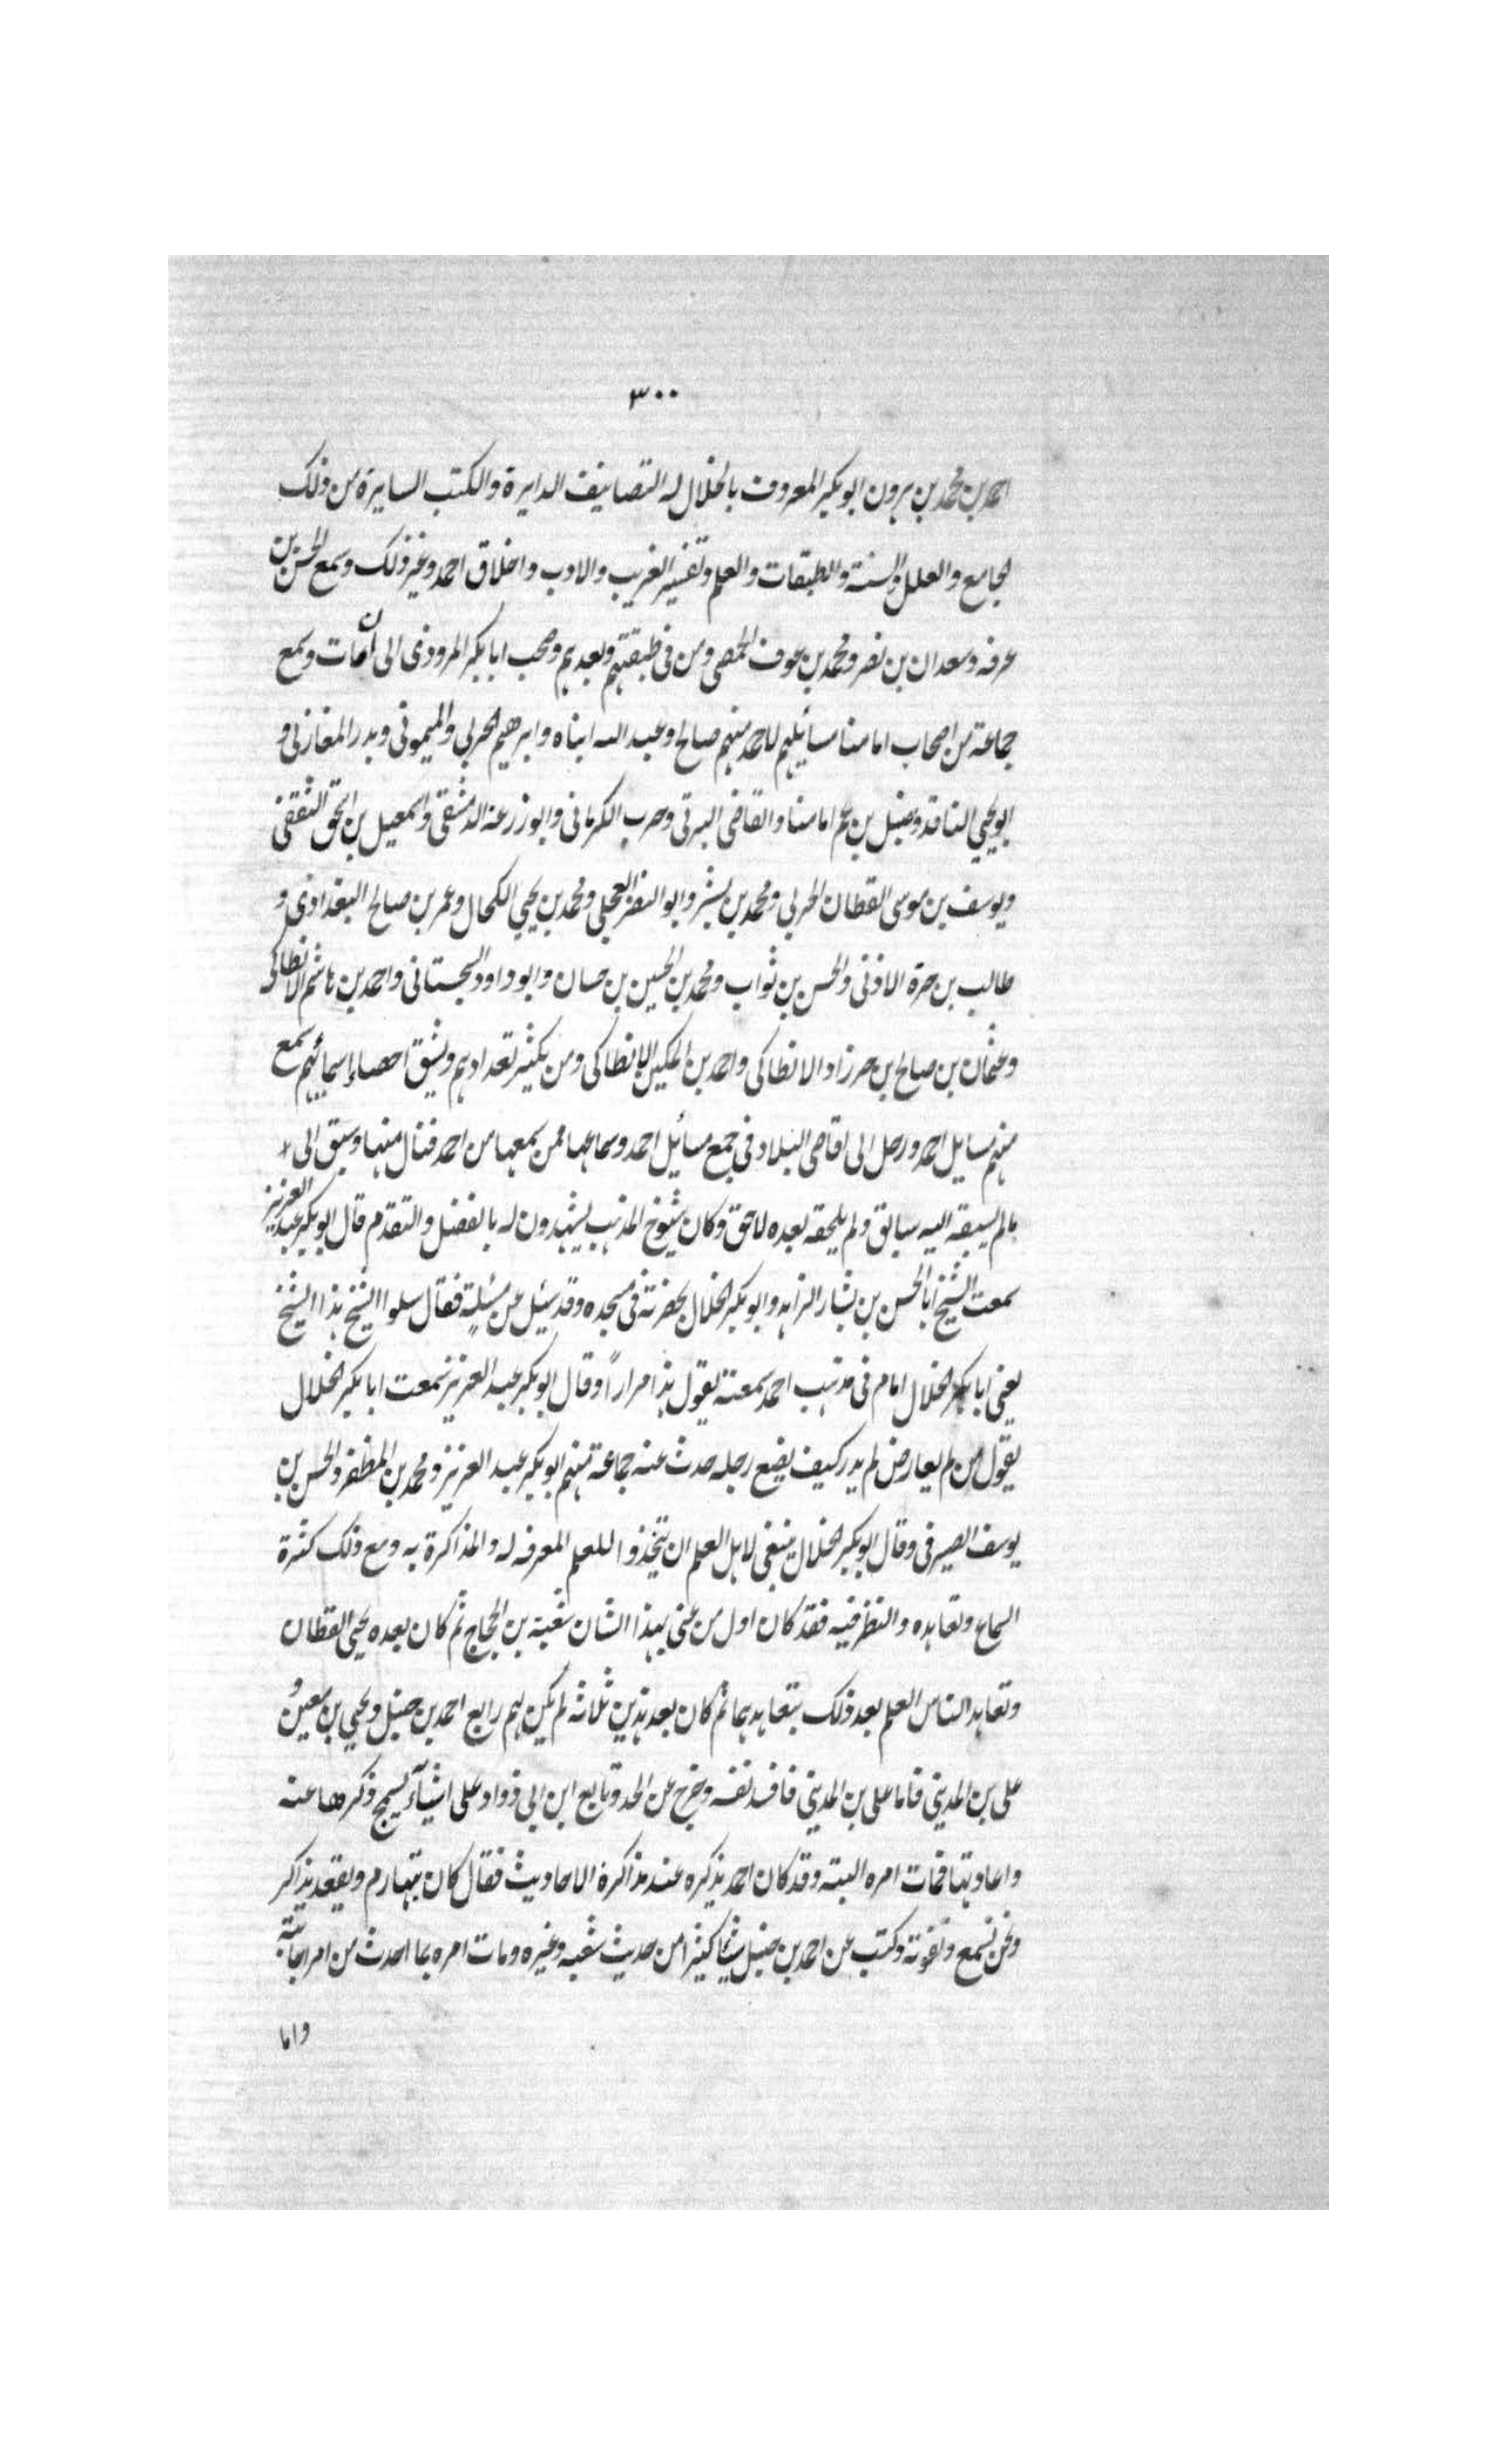 ٣٠٠
احمد بن محمد بن هرون ابو بكر المعروف بالخلال له التصانيف الدايرة والكتب السايرة من ذلك
الجامع والعلل والسنة والطبقات والعلم وتفسير الغريب والادب واخلاق احمد وغير ذلك وسمع الحسن بن
عرفه وسعدان بن نصر ومحمد بن عوف الحمصى ومن فى طبقتهم وبعدهم وصحب ابا بكر المروذى الى ان مات وسمع
جماعة من اصحاب امامنا مسايلهم لاحمد منهم صالح وعبد الله ابناه وابرهيم الحربى والميمونى وبدر المغازلى و
ابو يحيى الناقد وحنبل بن عم امامنا والقاضى البرتى وحرب الكرمانى وابو زرعة الدمشقى واسمعيل بن اسحق الثقفى
ويوسف بن موسى القطان الحربى ومحمد بن بشر وابو النضر العجلى ومحمد بن يحيى الكحال وعمر بن صالح البغدادى و
طالب بن حرة الاذنى والحسن بن ثواب ومحمد بن الحسين بن حسان وابو داود السجستانى واحمد بن هاشم الانطاكى
وعثمان بن صالح بن حرزاد الانطاكى واحمد بن المكين الانطاكى ومن يكثر تعدادهم ويشق احصاء اسمائهم سمع
منهم مسايل احمد ورحل الى اقاصى البلاد فى جمع مسائل احمد وسماعها ممن سمعها من احمد فنال منها وسبق الى
ما لم يسبقه اليه سابق ولم يلحقه بعده لاحق وكان شيوخ المذهب يشهدون له بالفضل والتقدم قال ابو بكر عبد العزيز
سمعت الشيخ ابا الحسن بن بشار الزاهد وابو بكر الخلال بحضرته فى مسجده وقد سئل عن مسئلة فقال سلوا الشيخ هذا الشيخ
يعنى ابا بكر الخلال امام فى مذهب احمد سمعته يقول هذا مراراً وقال ابو بكر عبد العزيز سمعت ابا بكر الخلال
يقول من لم يعارض لم يدر كيف يضع رجله حدث عنه جماعة منهم ابو بكر عبد العزيز ومحمد بن المظفر والحسن بن
يوسف الصيرفى وقال ابو بكر الخلال ينبغى لاهل العلم ان يتخذوا للعلم المعرفه له والمذاكرة به ومع ذلك كثرة
السماع وتعاهده والنظر فيه فقد كان اول من عنى بهذا الشان شعبة بن الحجاج ثم كان بعده يحيى القطان
وتعاهد الناس العلم بعد ذلك بتعاهدهما ثم كان بعد هذين ثلاثة لم يكن لهم رابع احمد بن حنبل ويحيى بن معين و
على بن المدينى فاما على بن المدينى فافسد نفسه وخرج عن الحد وتابع ابن ابى دواد على اشيآء يسمج ذكرها عنه
واعادتها فمات امره البتة وقد كان احمد يذكره عند مذاكرة الاحاديث فقال كان بهارم ويقعد يذاكر
ونحن نسمع وتفوته وكتب عن احمد بن حنبل شيئا كثيرا من حديث شعبه وغيره ومات امره بما احدث من امر اجابته
واما